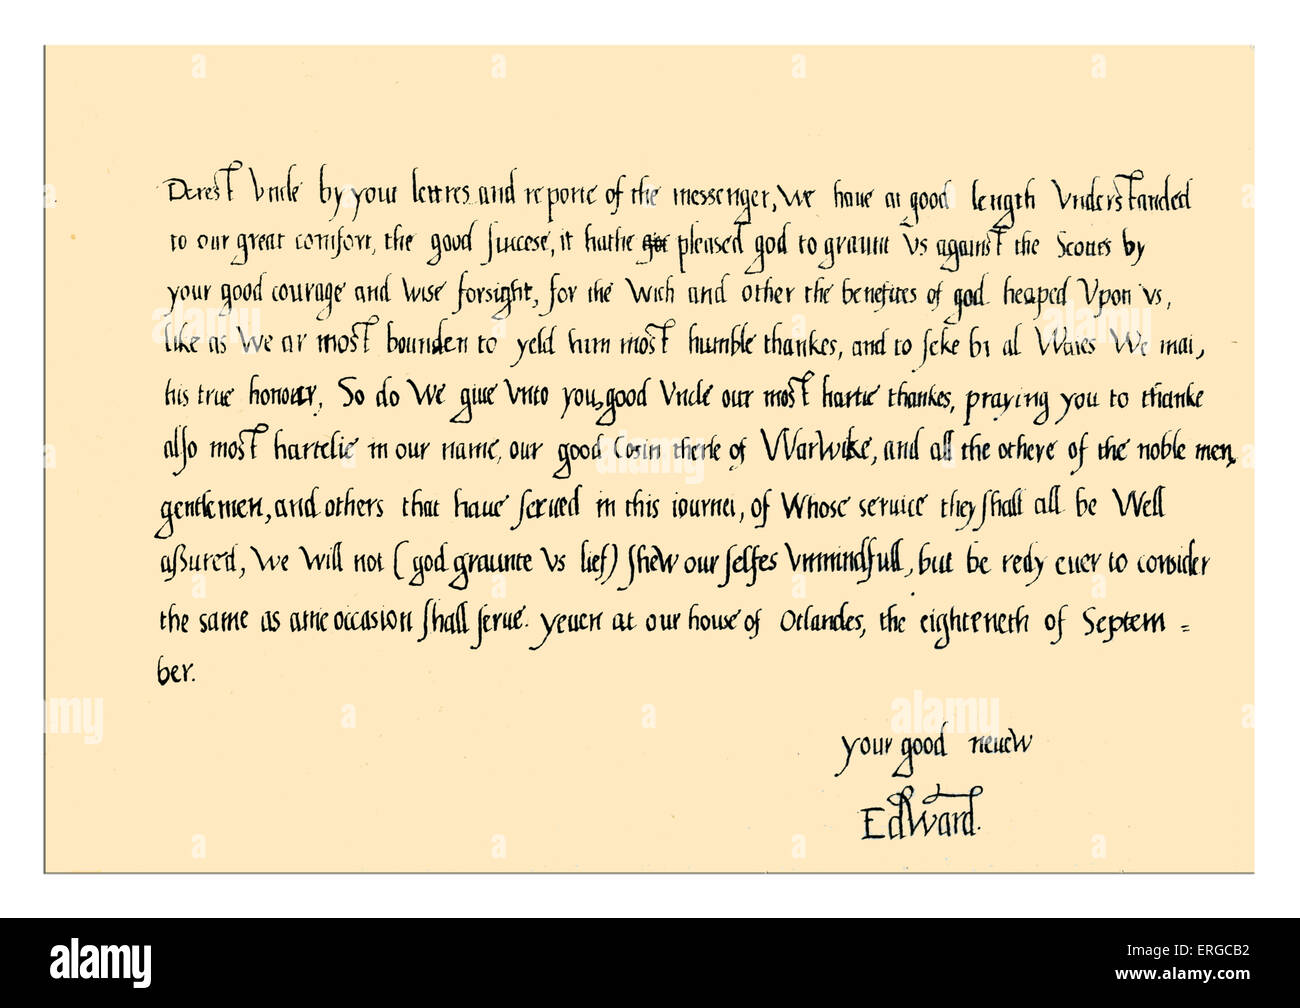 Derest Vncle by your lettres and reporte of the messenger, We haue at good length Vnderstanded
to our great comfort, the good succese, it hathe pleased god to graunt Vs against the Scottes by
your good courage and Wise forsight, for the Wich and other the benefites of god heaped Vpon Vs,
like as We ar most bounden to yeld him most humble thankes, and to seke bi al Waies We mai,
his true honour, So do We giue Vnto you, good Vncle our most hartie thankes, praying you to thanke
also most hartelie in our name, our good Cosin therle of Warwike, and all the othere of the noble men,
gentlemen, and others that haue serued in this iournei, of Whose seruice they shall all be Well
assured, We Will not (god graunte Vs lief) shew our selfes Vnmindfull, but be redy euer to consider
the same as anie occasion shall serue. Yeuen at our house of Otlandes, the eighteneth of Septem =
ber.
Your good neuew
EdWard.
alamy
ERGCB2
www.alamy.com